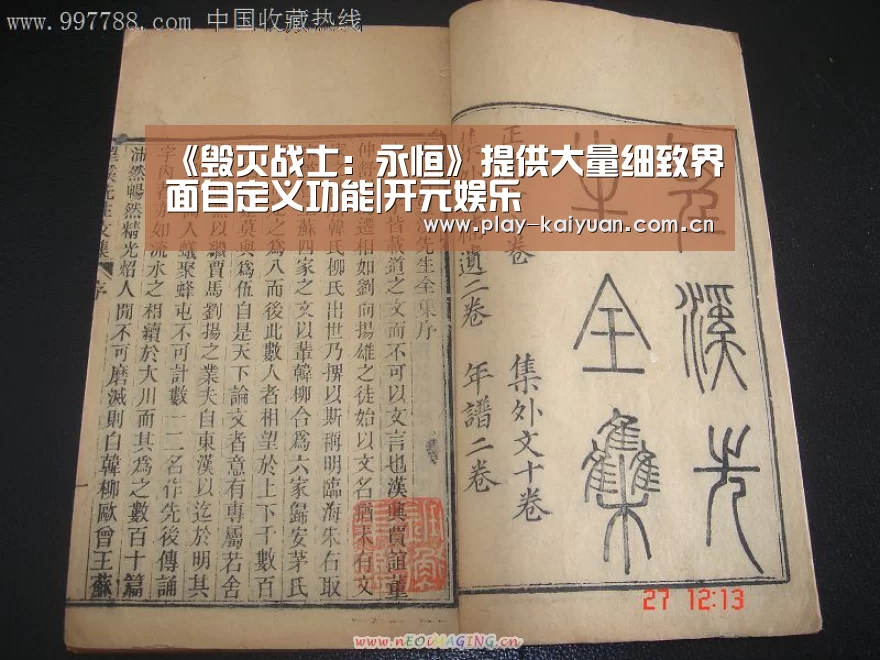 www.997788.com 中国收藏热线
《毁灭战士：永恒》提供大量细致界
面自定义功能|开元娱乐
www.play-kaiyuan.com.cn
溪先
生全集
卷 集外文十卷
遺二卷 年譜二卷
先生全集序
皆載道之文而不可以文言也漢興賈誼董
遷相如劉向揚雄之徒始以文名猶未有文
韓氏柳氏出世乃撰以斯稱明臨海朱右取
蘇四家之文以輩韓柳合爲六家歸安茅氏
之爲八而後此數人者相望於上下千數百
莫與爲伍自是天下論文者意有專屬若舍
以繼賈馬劉揚之業夫自東漢以迄於明其
人蟻聚蜂屯不可計數一二名作先後傳誦
亦如流水之相續於大川而其爲之數百十篇
沛然暢然精光熖人閒不可磨滅則自韓柳歐曾王蘇
溪先生文集 序
27 12:13
www.nEOiMAGING.cn